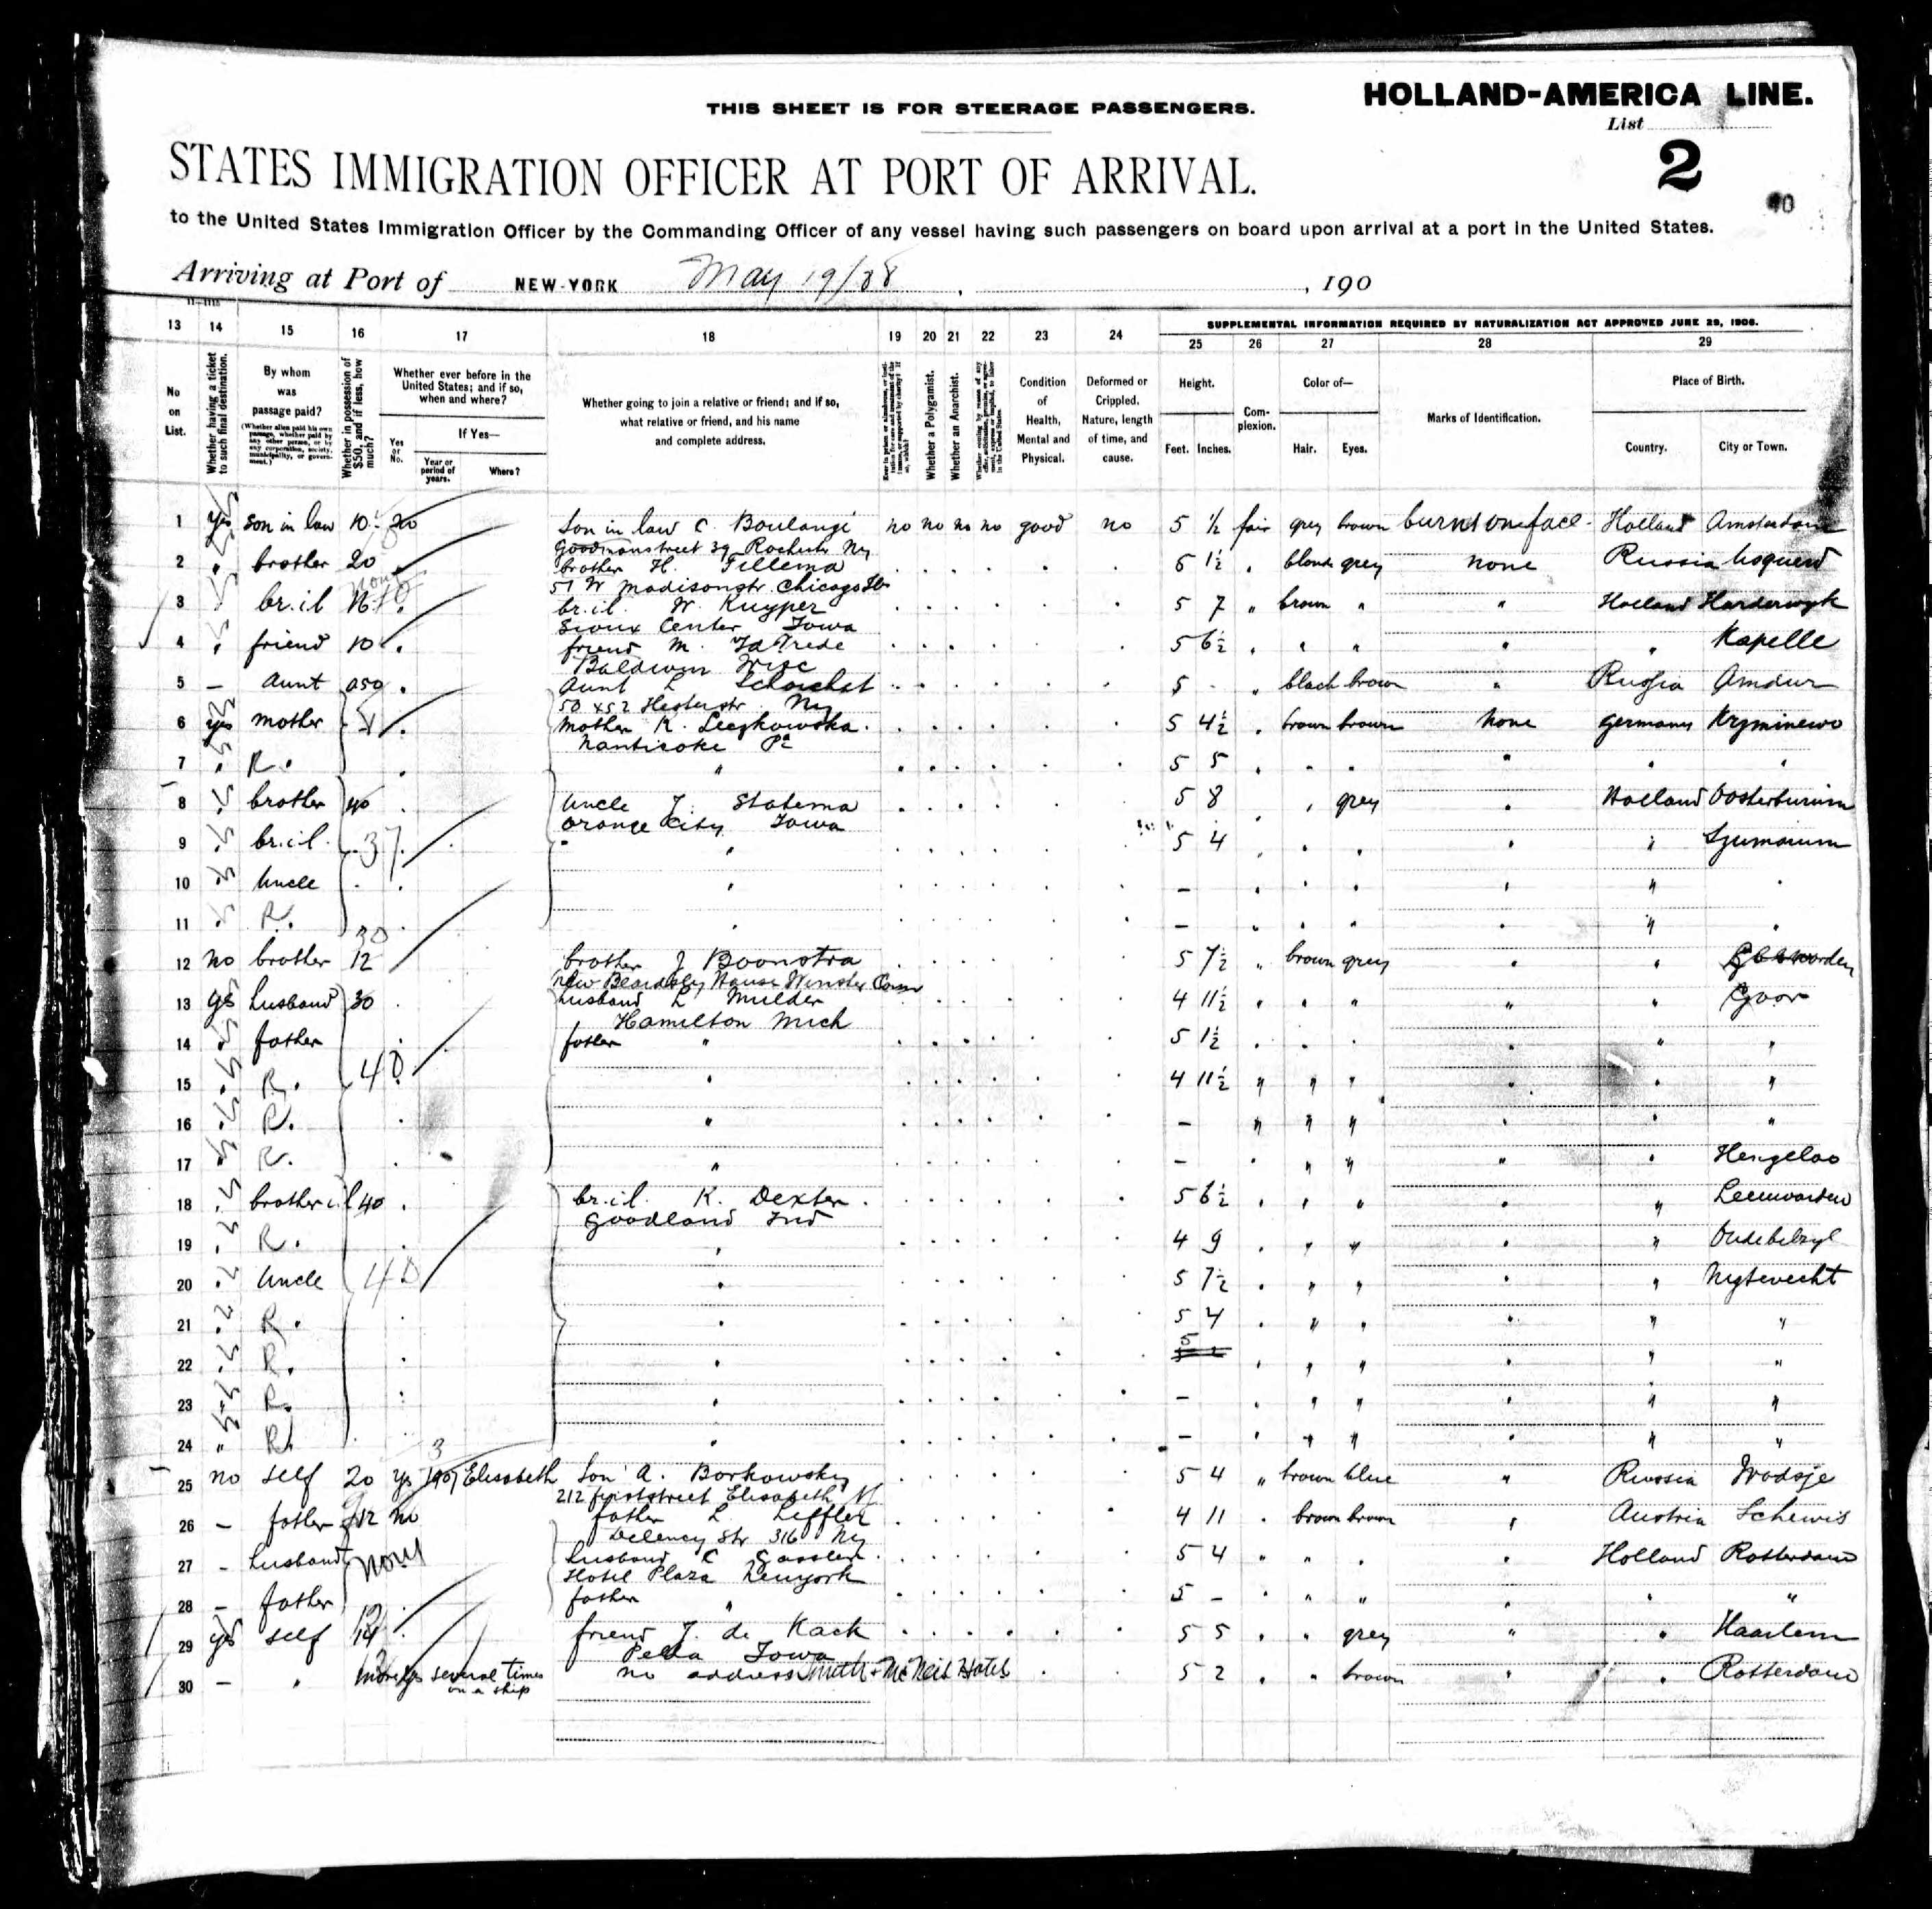 HOLLAND-AMERICA LINE.
THIS SHEET IS FOR STEERAGE PASSENGERS.
List
2
STATES IMMIGRATION OFFICER AT PORT OF ARRIVAL.
to the United States Immigration Officer by the Commanding Officer of any vessel having such passengers on board upon arrival at a port in the United States.
Arriving at Port of NEW-YORK May 19/08, 190
SUPPLEMENTAL INFORMATION REQUIRED BY NATURALIZATION ACT APPROVED JUNE 29, 1906.
13 14 15 16 17 18 19 20 21 22 23 24 25 26 27 28 29
No on List.
Whether having a ticket to such final destination.
By whom was passage paid?
(Whether alien paid his own passage, whether paid by any other person, or by any corporation, society, municipality, or government.)
Whether in possession of $50, and if less, how much?
Whether ever before in the United States; and if so, when and where?
Yes or No.
If Yes—
Year or period of years.
Where?
Whether going to join a relative or friend; and if so, what relative or friend, and his name and complete address.
Whether a Polygamist.
Whether an Anarchist.
Condition of Health, Mental and Physical.
Deformed or Crippled. Nature, length of time, and cause.
Height.
Feet. Inches.
Complexion.
Color of—
Hair. Eyes.
Marks of Identification.
Place of Birth.
Country. City or Town.
1 yes son in law 10 20 Son in law C. Boulangé no no no no good no 5 ½ fair grey brown burns one face Holland Amsterdam
Goodmanstreet 39 Rochester Ny
2 " brother 20 brother H. Tillema 5 1½ " blonde grey none Russia
51 W Madisonstr. Chicago Ill
3 br.il. br.il. W. Kuyper 5 7 " brown " " Holland Harderwyk
Sioux Center Iowa
4 friend 10 friend M. 5 6½ " " " " " Kapelle
Baldwin Wisc
5 — aunt Aunt L 5 " black brown " Russia Amdur
50 x 52 Hesterstr Ny
6 yes mother mother K. Leczkowska 5 4½ " brown brown none Germany Kryminewo
Nanticoke Pa
7 " R. " 5 5 " " " " " "
8 brother 40 Uncle J. Statema 5 8 " " grey " Holland Oosterburum
Orange City Iowa
9 br.il. 37 " 5 4 " " " " " Tzumarum
10 Uncle " — " " " " " "
11 R. " — " " " " " "
30
12 no brother 12 brother J Boonstra 5 7½ " brown grey " "
New Beardsley House Winsted Conn
13 yes husband 30 husband L Mulder 4 11½ " " " " " Goor
Hamilton Mich
14 " father father " 5 1½ " " " " " "
15 " R. 40 " 4 11½ " " " " " "
16 " R. " — " " " " " "
17 " R. " — " " " " " Hengeloo
18 " brother i.l 40 br.il. K. Dexter 5 6½ " " " " " Leeuwarden
Goodland Ind
19 " R. " 4 9 " " " " " Oudebilzyl
20 " Uncle 40 " 5 7½ " " " " " Nytevecht
21 " R. " 5 4 " " " " " "
22 " R. " 5 " " " " " "
23 " R. " — " " " " " "
24 " R. " — " " " " " "
25 no self 20 ys 1907 Elisabeth Son A. Borkowsky 5 4 " brown blue " Russia Wodsje
212 firststreet Elisabeth NJ
26 — father 12 no father L. Leffler 4 11 " brown brown " Austria Schewis
Delency Str 316 Ny
27 — husband none husband C Gassler 5 4 " " " " Holland Rotterdam
Hotel Plaza Newyork
28 — father father " 5 — " " " " " "
29 yes self 14 friend J. de Kack 5 5 " " grey " " Haarlem
Pella Iowa
30 — " yes several times on a ship no address Smith + McNeil Hotel 5 2 " " brown " " Rotterdam